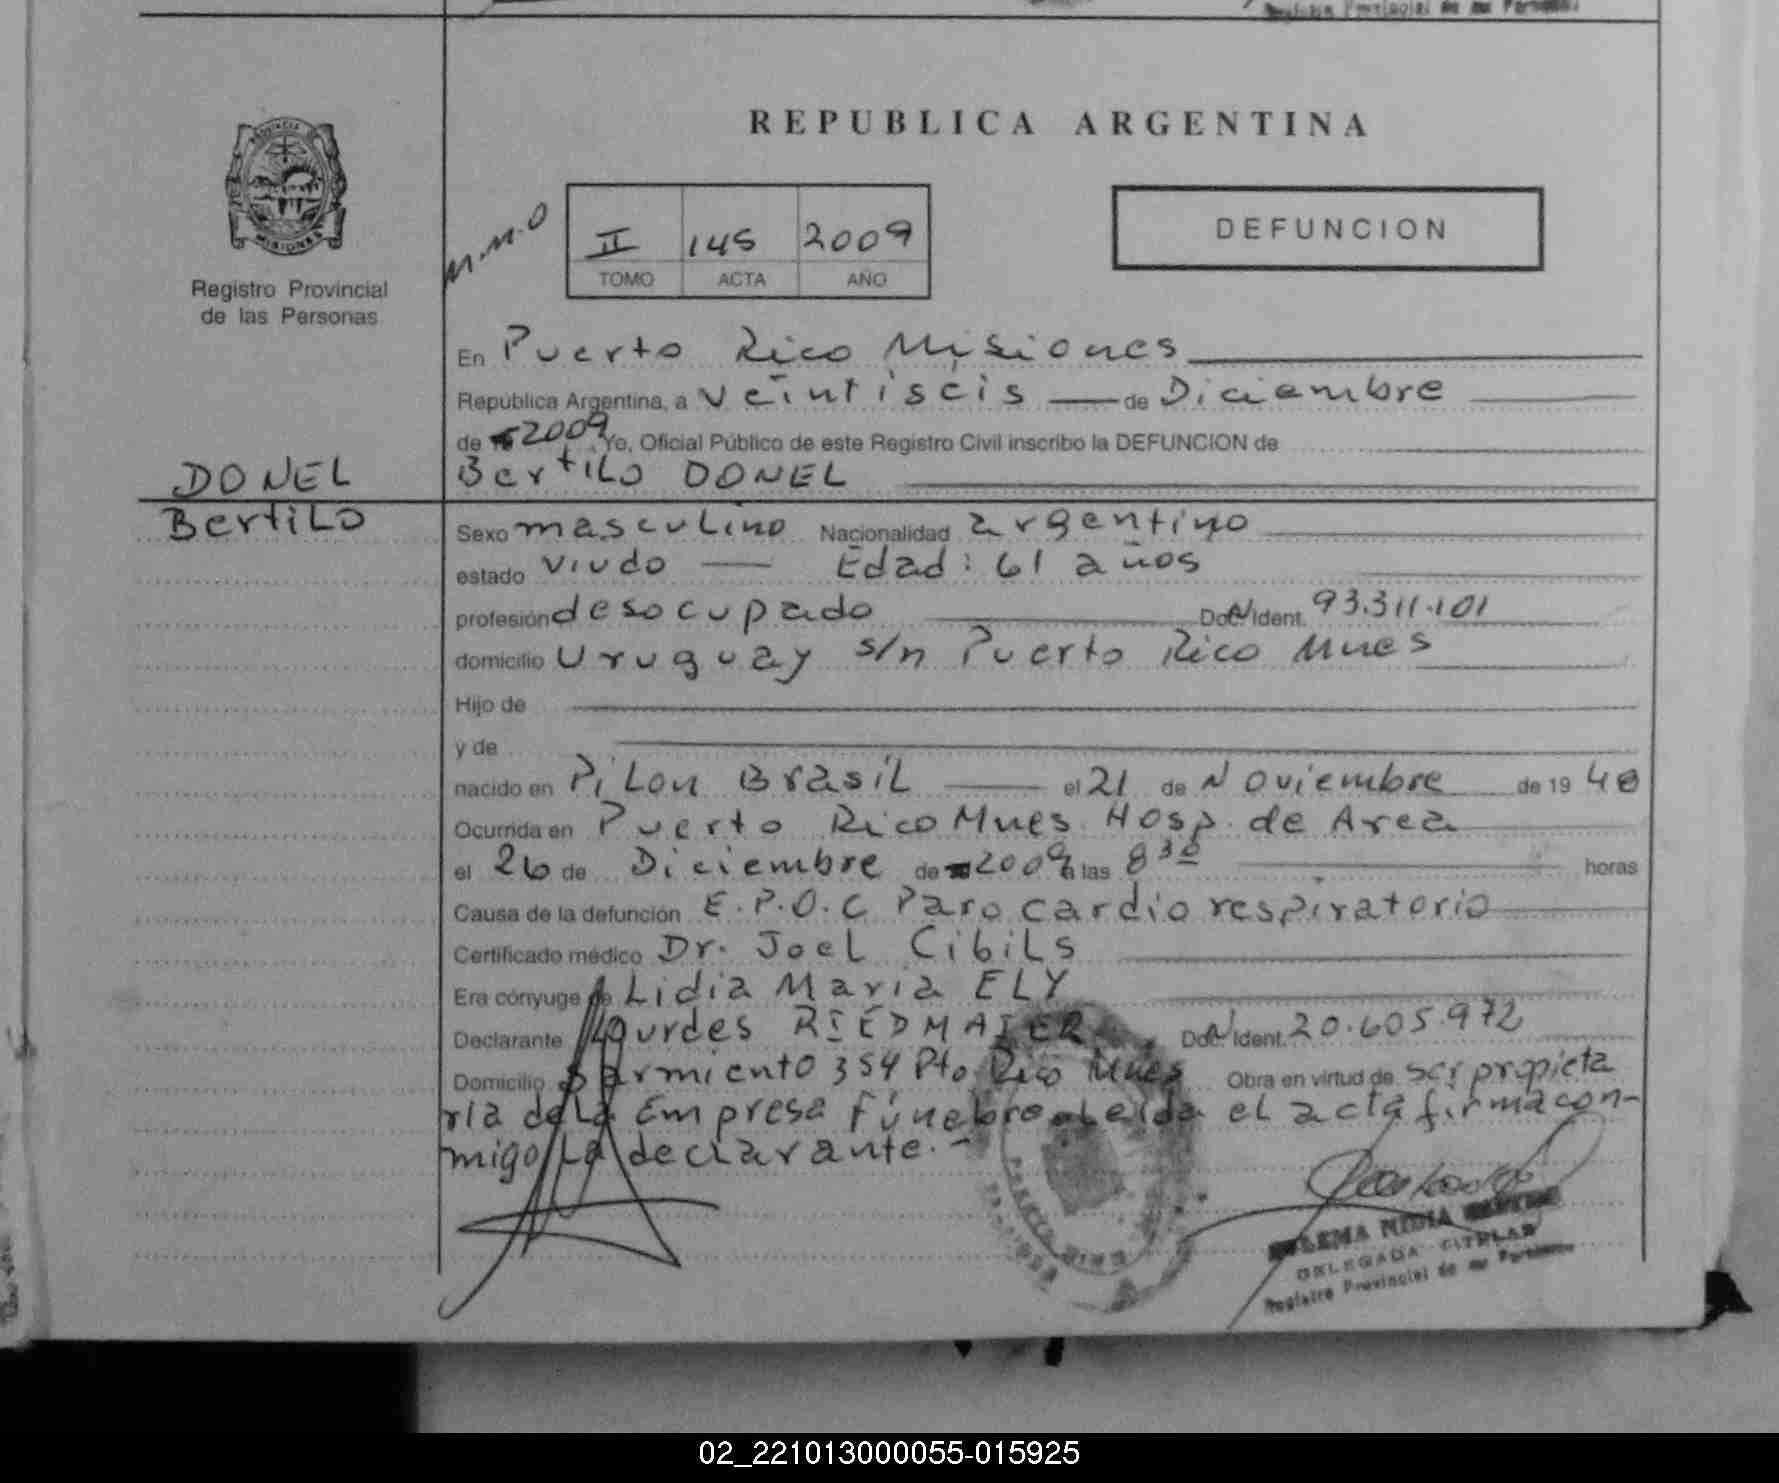 Registro Provincial de las Personas
REPUBLICA ARGENTINA
M.M.O
II 145 2009
TOMO ACTA AÑO
DEFUNCION
PROVINCIA DE
MISIONES
Registro Provincial
de las Personas
En Puerto Rico Misiones
República Argentina, a veintiseis de Diciembre
de 2009 Yo, Oficial Público de este Registro Civil inscribo la DEFUNCION de
DONEL
Bertilo DONEL
Bertilo
Sexo masculino Nacionalidad argentino
estado viudo Edad: 61 años
profesión desocupado Doc. Ident. 93.311.101
domicilio Uruguay s/n Puerto Rico Mnes
Hijo de
y de
nacido en Pilon Brasil el 21 de Noviembre de 19 48
Ocurrida en Puerto Rico Mnes Hosp. de Area
el 26 de Diciembre de 2009 a las 8 30 horas
Causa de la defunción E.P.O.C Paro cardio respiratorio
Certificado médico Dr. Joel Cibils
Era cónyuge de Lidia Maria ELY
Declarante Lourdes RIEDMAIER Doc. Ident. 20.605.972
Domicilio Sarmiento 354 Pto Rico Mnes Obra en virtud de ser propieta
ria de la Empresa Fúnebre. Leída el acta firma con-
migo la declarante.-
PUERTO RICO
DELEGADA TITULAR
Registro Provincial de las Personas
02_221013000055-015925